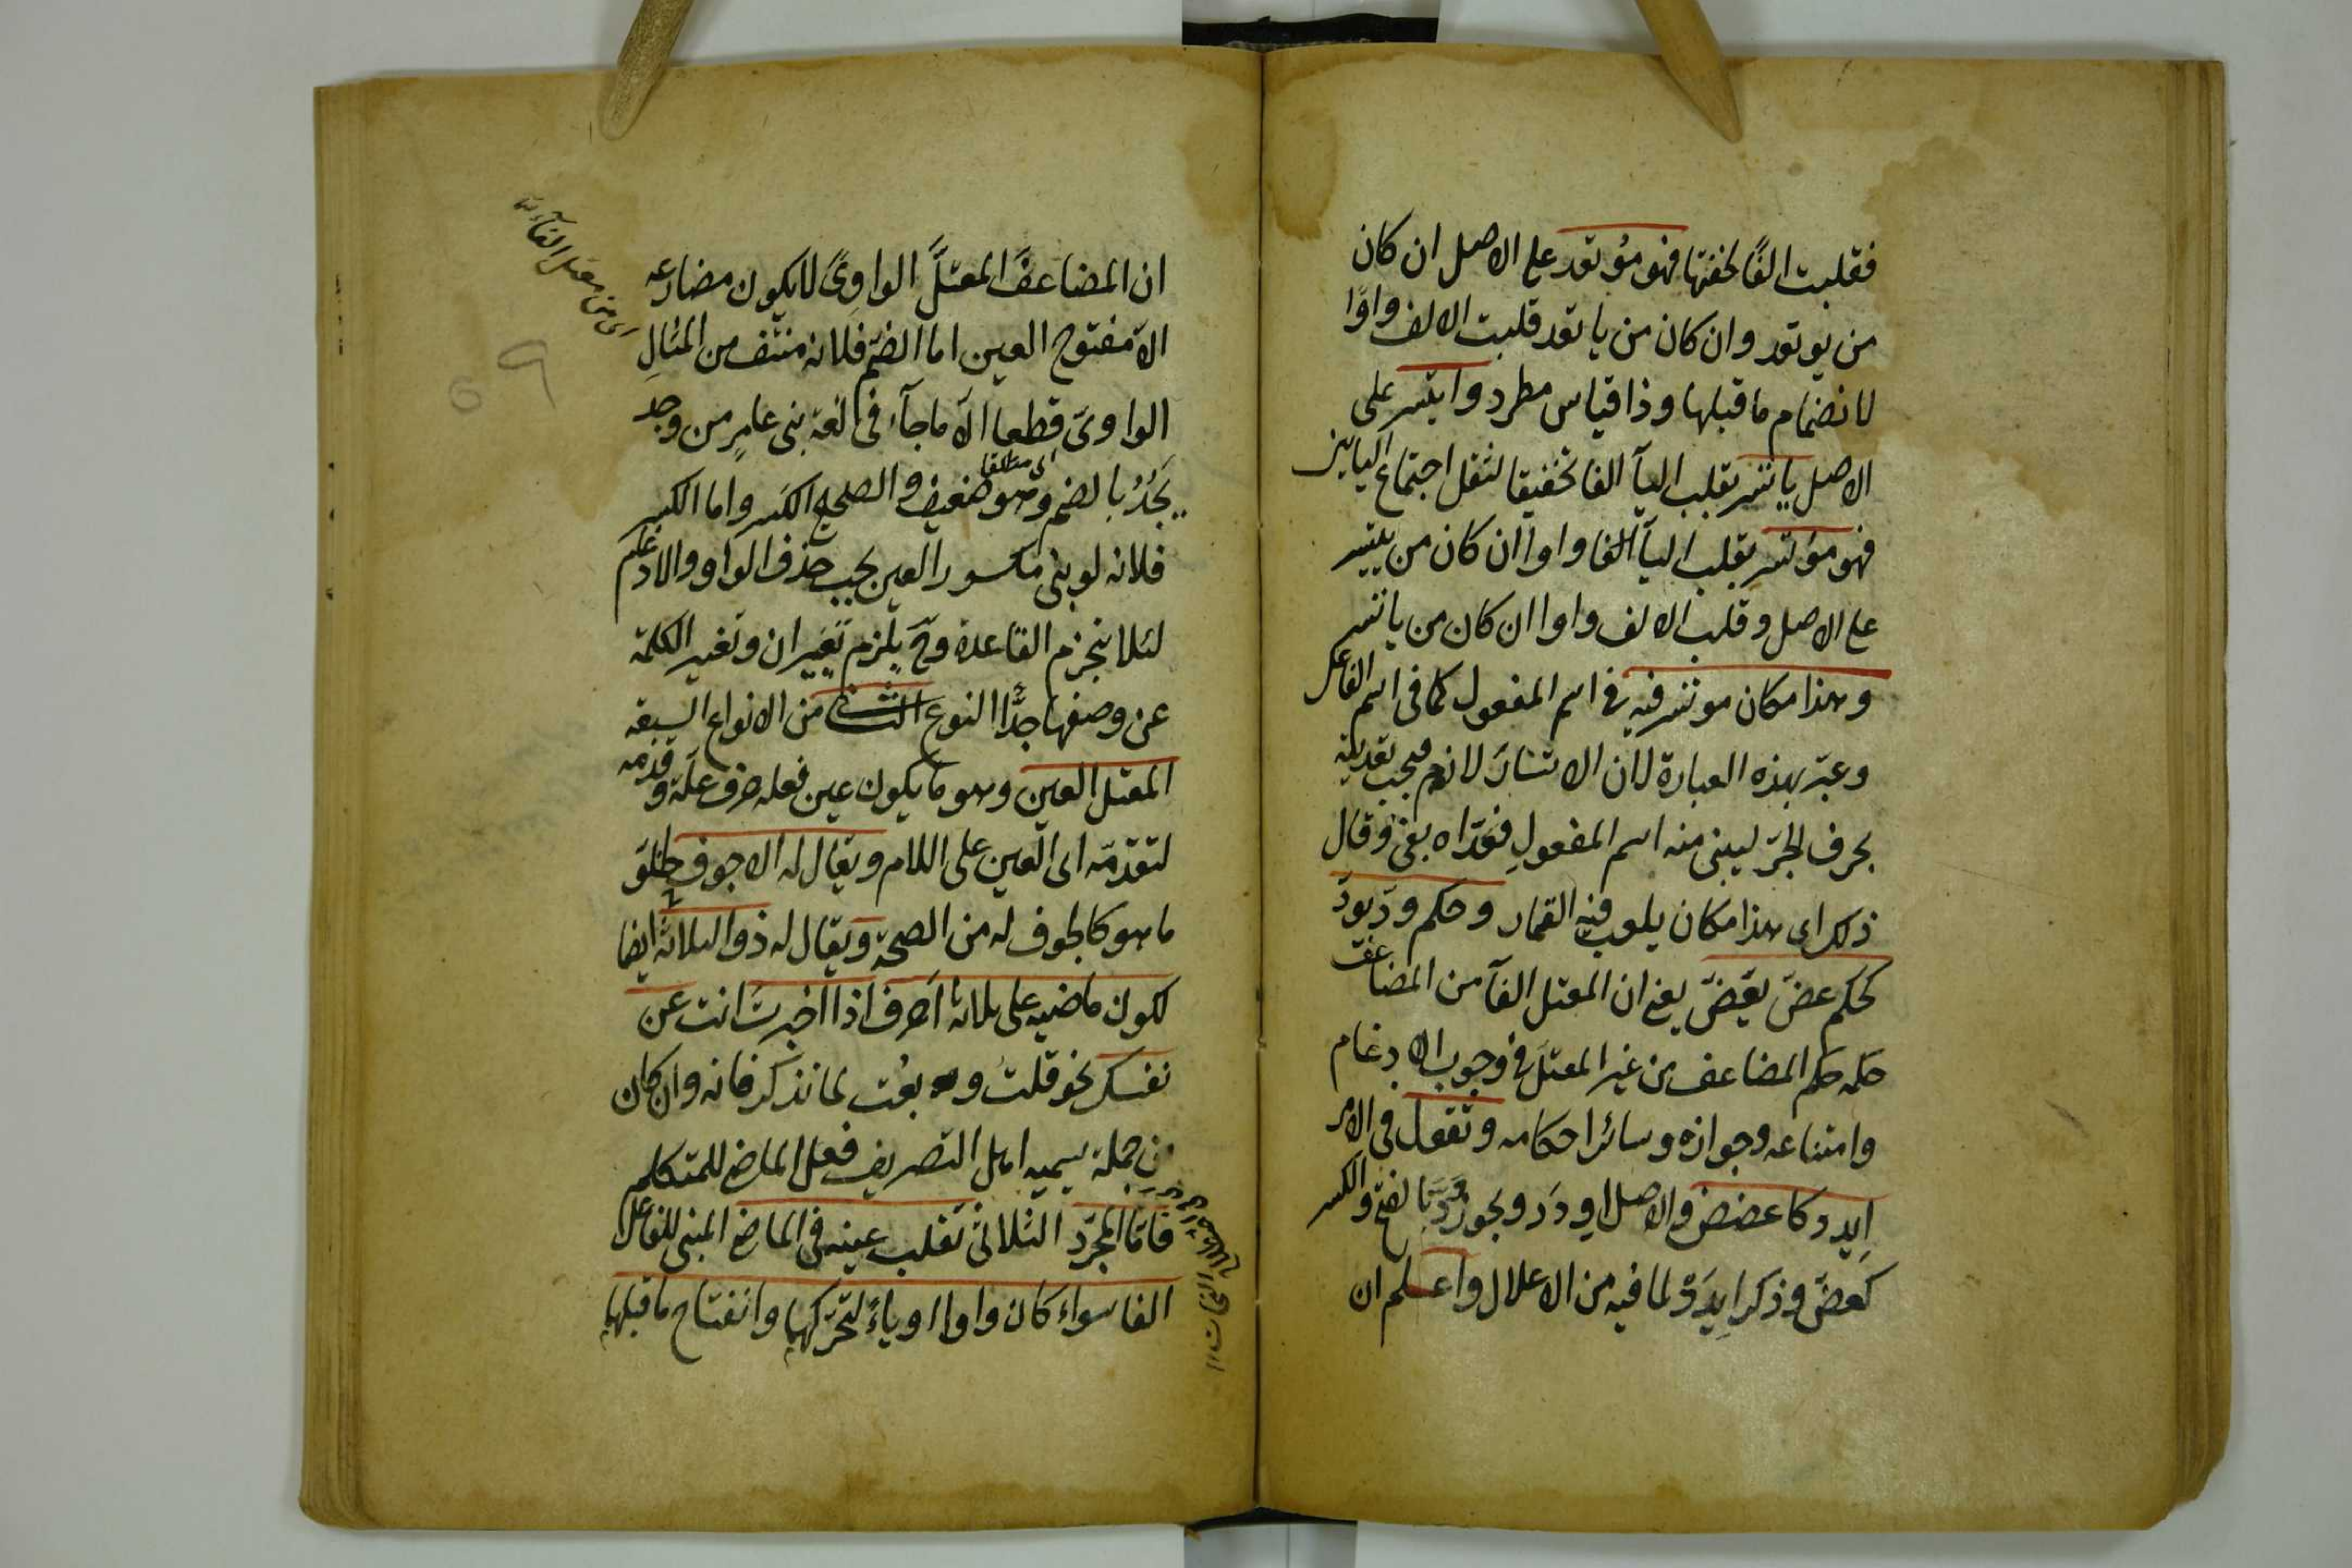 فقلبت الفًا لخفتها فهو مُوتعد على الاصل ان كان
من يوتعد وان كان من ياتعد قلبت الالف واوًا
لانضمام ما قبلها وذا قياس مطرد وايتسر على
الاصل ياتسر بقلب اليآ الفا تخفيفا لثقل اجتماع اليائين
فهو موتسر بقلب اليآ الفا واوا ان كان من ييتسر
على الاصل وقلب الالف واوا ان كان من ياتسر
وهذا مكان موتسر فيه في اسم المفعول كما في اسم الفاعل
وعبّر بهذه العبارة لان الاتسار لازم فيجب تعديته
بحرف الجرّ ليبنى منه اسم المفعولِ فعدّاه بفى وقال
ذلك اى هذا مكان يلعب فيه القمار وحكم ودّ يودّ
كحكم عضّ يعَضّ يعنى ان المعتل الفآ من المضاعف
حكمه حكم المضاعف من غير المعتلّ في وجوب الادغام
وامتناعه وجوازه وسائر احكامه وتقول في الامر
اِيدد كاعضض والاصل اِودَد ويجوز وَدّ بالفتح والكسر
كعَضّ وذكر اِيدَدْ لما فيه من الاعلال واعلم ان
ان المضاعفَ المعتلَّ الواوِىَّ لا يكون مضارعه
الّا مفتوح العين اما الضمّ فلانه منتف من المثالِ
الواوىّ قطعا الّا ما جآء في لغة بنى عامرٍ من وجد
يَجُدُ بالضم وهو ضعيف والصحيح الكسر واما الكسر
اى مطلقا
فلانه لو بنى مكسور العين يجب حذف الواو والادغام
لئلا ينخرم القاعدة وحَ يلزم تغييران وتغير الكلمة
عن وصفها جدًّا النوع الثانى من الانواع السبعة
المعتل العين وهو ما يكون عين فعله حرف علّة وقدّمه
لتقدّمه اى العين على اللام ويقال له الاجوف لخلوّ
ما هو كالجوف له من الصحة ويقال له ذو الثلاثة ايضا
لكون ماضيه على ثلاثة اَحرف اذا اخبرتَ انت عن
نفسك نحو قلتُ وبعْت لما نذكر فانه وان كان
من جملة يسميه اهل التصريف فعل الماضى للمتكلم
فامّا المجرّد الثلاثىّ تقلب عينه في الماضى المبنى للفاعل
الفا سواء كان واوا او ياءً لتحرّكها وانفتاح ما قبلها
اى من معتل الفآء